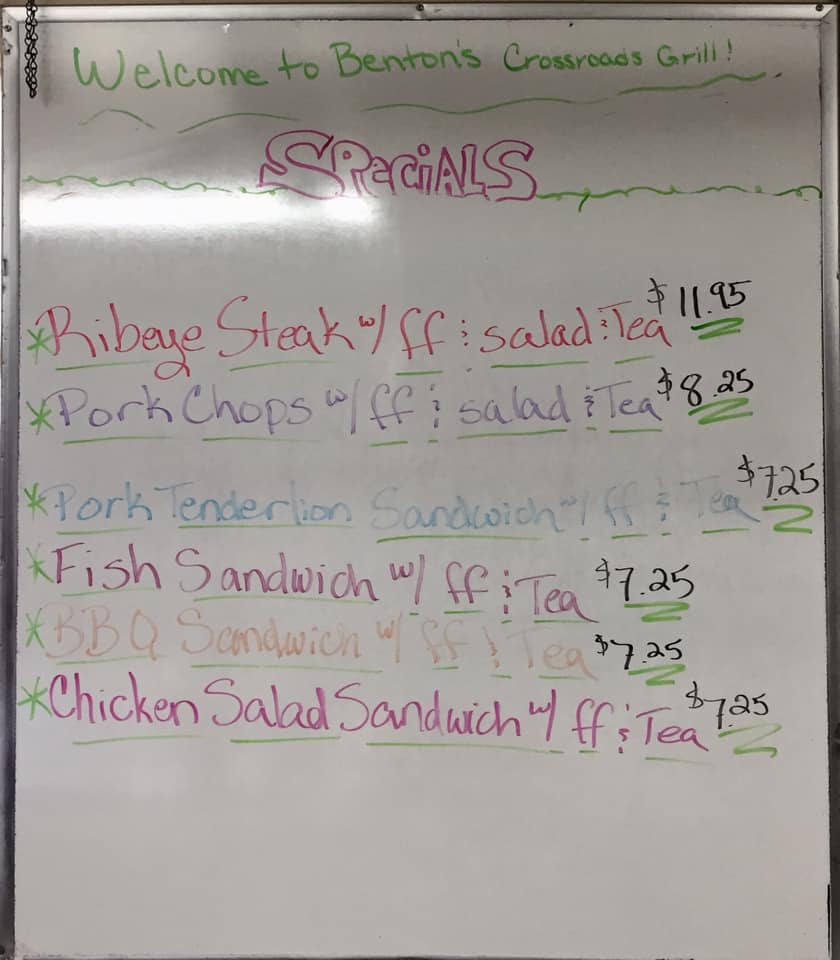 Welcome to Benton's Crossroads Grill!
SPeciALS
*Ribeye Steak w/ ff & salad & Tea $11.95
*Pork Chops w/ ff & salad & Tea $8.25
*Pork Tenderlion Sandwich w/ ff & Tea $7.25
*Fish Sandwich w/ ff & Tea $7.25
*BBQ Sandwich w/ ff & Tea $7.25
*Chicken Salad Sandwich w/ ff & Tea $7.25